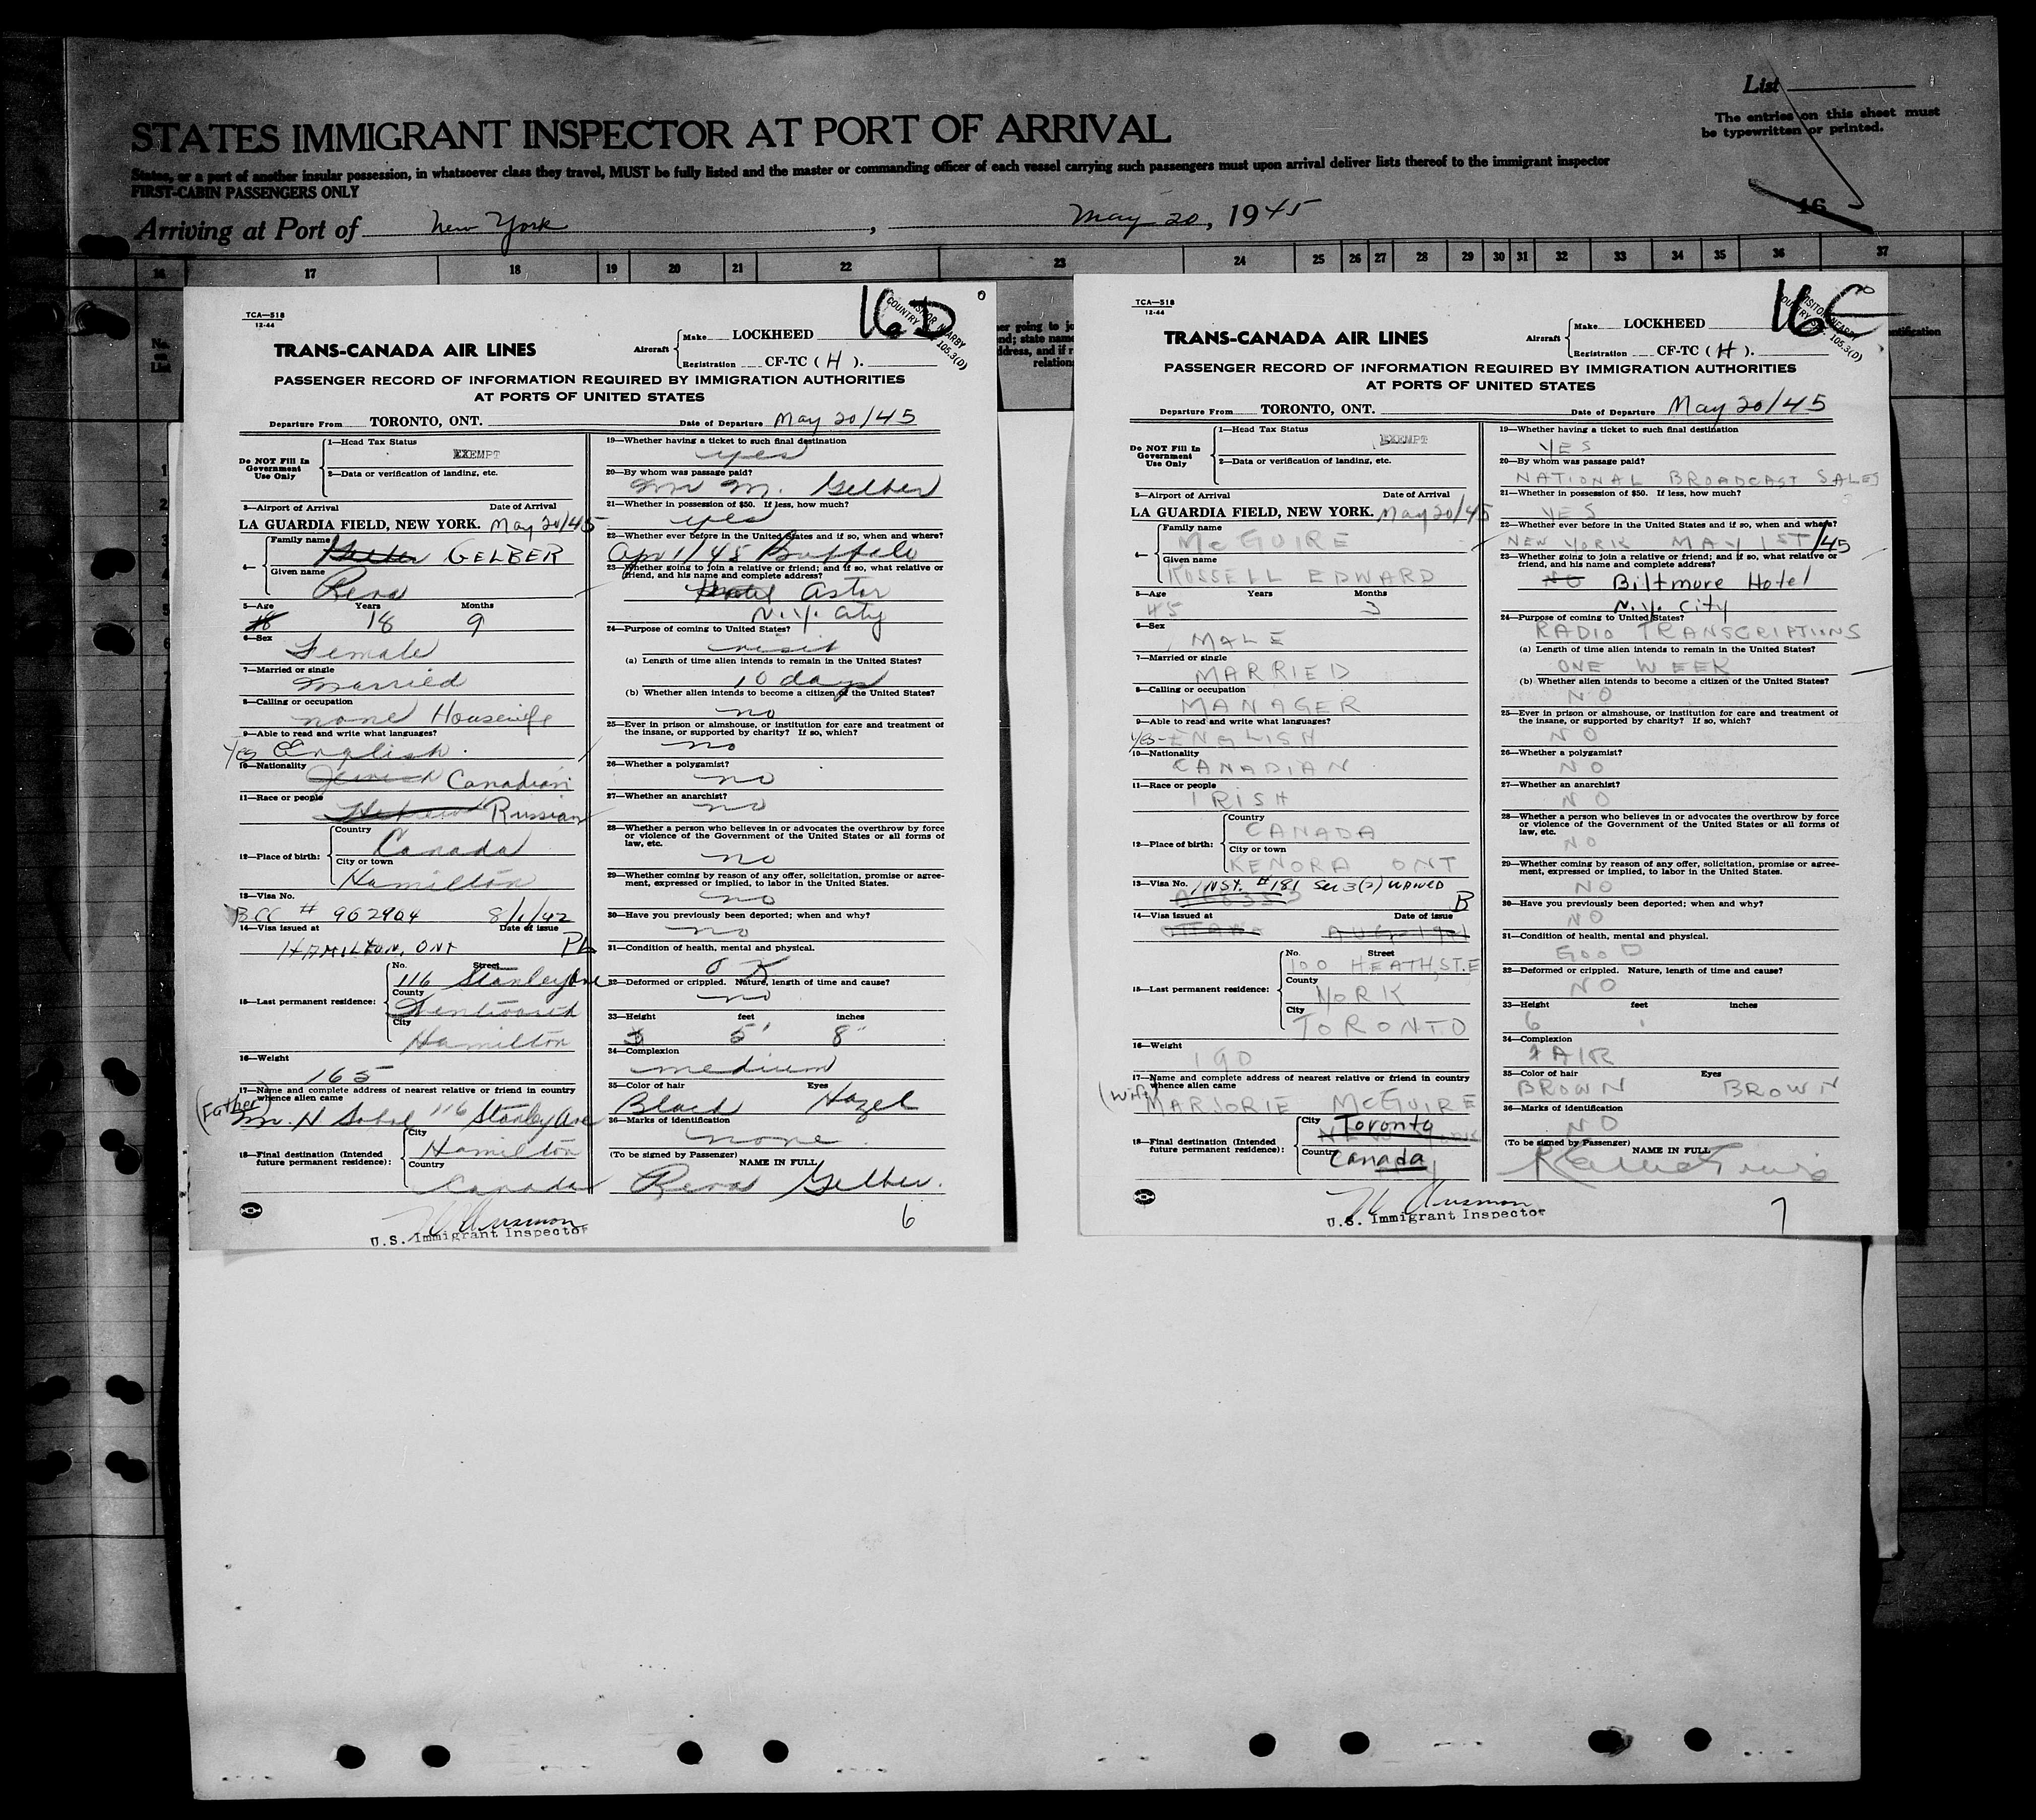 List
The entries on this sheet must
be typewritten or printed.
STATES IMMIGRANT INSPECTOR AT PORT OF ARRIVAL
States, or a port of another insular possession, in whatsoever class they travel, MUST be fully listed and the master or commanding officer of each vessel carrying such passengers must upon arrival deliver lists thereof to the immigrant inspector
FIRST-CABIN PASSENGERS ONLY
16
Arriving at Port of New York, May 20, 1945
16 17 18 19 20 21 22 23 24 25 26 27 28 29 30 31 32 33 34 35 36 37
No.
on
List
1
2
3
4
5
6
TCA—518
12-44
16D
COUNTRY
105.3(D)
TRANS-CANADA AIR LINES
Aircraft
Make LOCKHEED
Registration CF-TC (H).
PASSENGER RECORD OF INFORMATION REQUIRED BY IMMIGRATION AUTHORITIES
AT PORTS OF UNITED STATES
Departure From TORONTO, ONT. Date of Departure May 20/45
Do NOT Fill In
Government
Use Only
1—Head Tax Status
EXEMPT
2—Data or verification of landing, etc.
3—Airport of Arrival Date of Arrival
LA GUARDIA FIELD, NEW YORK. May 20/45
4—
Family name
GELBER
Given name
Rena
5—Age Years Months
18 18 9
6—Sex
Female
7—Married or single
Married
8—Calling or occupation
none Housewife
9—Able to read and write what languages?
Yes English.
10—Nationality
Jewish Canadian
11—Race or people
Hebrew Russian
12—Place of birth:
Country
Canada
City or town
Hamilton
13—Visa No.
BCC # 902904 8/1/42
14—Visa issued at Date of issue
HAMILTON, ONT
15—Last permanent residence:
No. Street
116 Stanley Ave
County
Wentworth
City
Hamilton
16—Weight
165
17—Name and complete address of nearest relative or friend in country
whence alien came
(Father)
Mr. H Sobel 116 Stanley Ave
18—Final destination (Intended
future permanent residence):
City
Hamilton
Country
Canada
U.S. Immigrant Inspector
19—Whether having a ticket to such final destination
yes
20—By whom was passage paid?
Mr M. Gelber
21—Whether in possession of $50. If less, how much?
yes
22—Whether ever before in the United States and if so, when and where?
Apr 1/45 Buffalo
23—Whether going to join a relative or friend; and if so, what relative or
friend, and his name and complete address?
Hotel Astor
N.Y. City
24—Purpose of coming to United States?
visit
(a) Length of time alien intends to remain in the United States?
10 days
(b) Whether alien intends to become a citizen of the United States?
no
25—Ever in prison or almshouse, or institution for care and treatment of
the insane, or supported by charity? If so, which?
no
26—Whether a polygamist?
no
27—Whether an anarchist?
no
28—Whether a person who believes in or advocates the overthrow by force
or violence of the Government of the United States or all forms of
law, etc.
no
29—Whether coming by reason of any offer, solicitation, promise or agree-
ment, expressed or implied, to labor in the United States.
no
30—Have you previously been deported; when and why?
no
31—Condition of health, mental and physical.
O K
32—Deformed or crippled. Nature, length of time and cause?
no
33—Height feet inches
5' 8"
34—Complexion
medium
35—Color of hair Eyes
Black Hazel
36—Marks of identification
none.
(To be signed by Passenger)
NAME IN FULL
Rena Gelber.
6
TCA—518
12-44
105.3(D)
TRANS-CANADA AIR LINES
Aircraft
Make LOCKHEED
Registration CF-TC (H).
PASSENGER RECORD OF INFORMATION REQUIRED BY IMMIGRATION AUTHORITIES
AT PORTS OF UNITED STATES
Departure From TORONTO, ONT. Date of Departure May 20/45
Do NOT Fill In
Government
Use Only
1—Head Tax Status
EXEMPT
2—Data or verification of landing, etc.
3—Airport of Arrival Date of Arrival
LA GUARDIA FIELD, NEW YORK. May 20/45
4—
Family name
McGUIRE
Given name
RUSSELL EDWARD
5—Age Years Months
45
6—Sex
MALE
7—Married or single
MARRIED
8—Calling or occupation
MANAGER
9—Able to read and write what languages?
Yes-ENGLISH
10—Nationality
CANADIAN
11—Race or people
IRISH
12—Place of birth:
Country
CANADA
City or town
KENORA ONT
13—Visa No. INST. #181 Sec 3(2) WAIVED
B
14—Visa issued at Date of issue
OTTAWA
15—Last permanent residence:
No. Street
100 HEATH, ST. E
County
YORK
City
TORONTO
16—Weight
190
17—Name and complete address of nearest relative or friend in country
whence alien came
(Wife)
MARJORIE McGUIRE
18—Final destination (Intended
future permanent residence):
City
Toronto
NEW YORK
Country
Canada
U.S. Immigrant Inspector
19—Whether having a ticket to such final destination
YES
20—By whom was passage paid?
NATIONAL BROADCAST SALES
21—Whether in possession of $50. If less, how much?
YES
22—Whether ever before in the United States and if so, when and where?
NEW YORK MAY 1ST/45
23—Whether going to join a relative or friend; and if so, what relative or
friend, and his name and complete address?
NO Biltmore Hotel
N.Y. City
24—Purpose of coming to United States?
RADIO TRANSCRIPTIONS
(a) Length of time alien intends to remain in the United States?
ONE WEEK
(b) Whether alien intends to become a citizen of the United States?
NO
25—Ever in prison or almshouse, or institution for care and treatment of
the insane, or supported by charity? If so, which?
NO
26—Whether a polygamist?
NO
27—Whether an anarchist?
NO
28—Whether a person who believes in or advocates the overthrow by force
or violence of the Government of the United States or all forms of
law, etc.
NO
29—Whether coming by reason of any offer, solicitation, promise or agree-
ment, expressed or implied, to labor in the United States.
NO
30—Have you previously been deported; when and why?
NO
31—Condition of health, mental and physical.
GOOD
32—Deformed or crippled. Nature, length of time and cause?
NO
33—Height feet inches
6
34—Complexion
FAIR
35—Color of hair Eyes
BROWN BROWN
36—Marks of identification
NO
(To be signed by Passenger)
NAME IN FULL
7